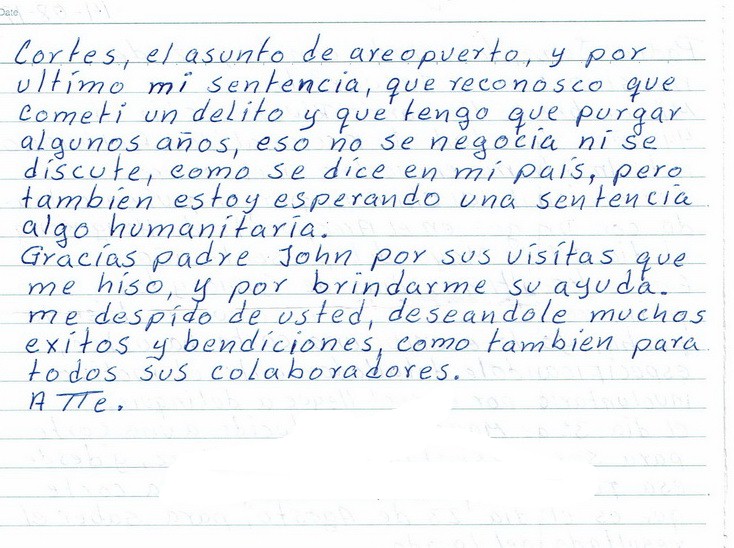 Date
Cortes, el asunto de areopuerto, y por
ultimo mi sentencia, que reconosco que
cometi un delito y que tengo que purgar
algunos años, eso no se negocia ni se
discute, como se dice en mi país, pero
tambien estoy esperando una sentencia
algo humanitaria.
Gracias padre John por sus visitas que
me hiso, y por brindarme su ayuda.
me despido de usted, deseandole muchos
exitos y bendiciones, como tambien para
todos sus colaboradores.
ATTe.